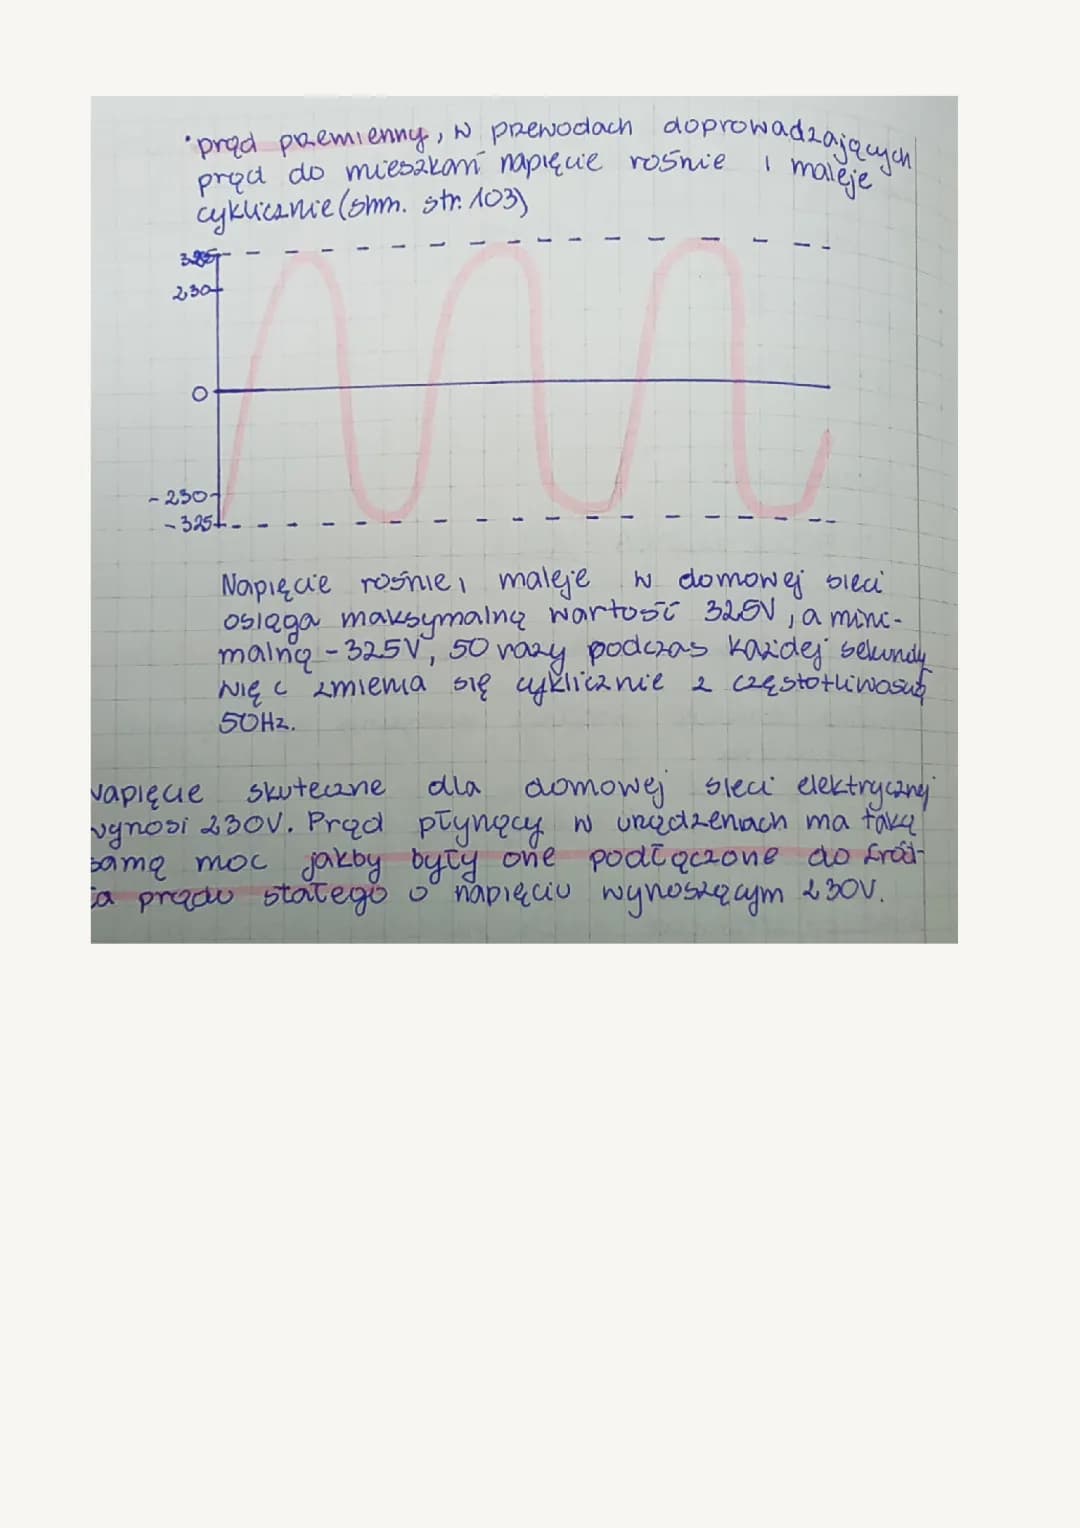 • prąd przemienny, w przewodach doprowadzających
prąd do mieszkań napięcie rośnie i maleje
cyklicznie (shm. str. 103)
325
230
0
-230
-325
Napięcie rośnie i maleje w domowej sieci
osiąga maksymalną wartość 325V, a mini-
malną -325V, 50 razy podczas każdej sekundy
więc zmienia się cyklicznie z częstotliwością
50Hz.
Napięcie skuteczne dla domowej sieci elektrycznej
wynosi 230V. Prąd płynący w urządzeniach ma taką
samą moc jakby były one podłączone do źród-
ła prądu stałego o napięciu wynoszącym 230V.